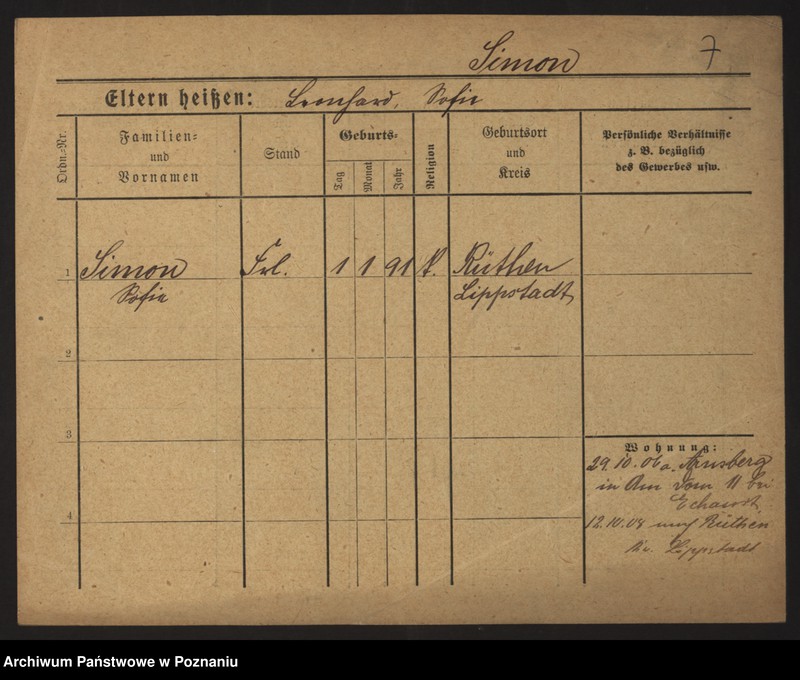 Simon 7
Eltern heißen: Leonhard, Sofie
Ordn.-Nr.
Familien-
und
Vornamen
Stand
Geburts-
Tag
Monat
Jahr
Religion
Geburtsort
und
Kreis
Persönliche Verhältnisse
z. B. bezüglich
des Gewerbes usw.
1 Simon Frl. 1 1 91 k. Rüthen
Sofie Lippstadt
2
3
4
Wohnung:
29.10.06 a. Arnsberg
in vom 11 bei
12.10.08 Rüthen
Kr. Lippstadt
Archiwum Państwowe w Poznaniu